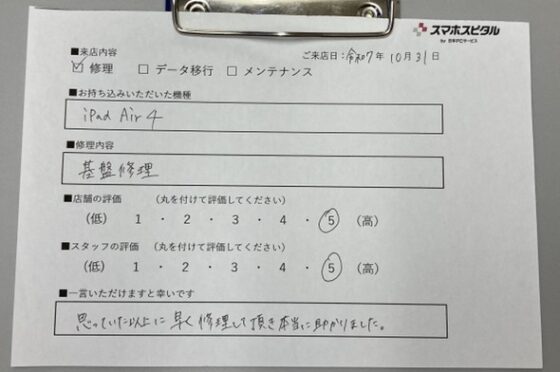 スマホスピタル
by 日本PCサービス
■来店内容 ご来店日：令和7年10月31日
☑ 修理 □ データ移行 □ メンテナンス
■お持ち込みいただいた機種
iPad Air 4
■修理内容
基盤修理
■店舗の評価 (丸を付けて評価してください)
(低) 1 ・ 2 ・ 3 ・ 4 ・ 5 (高)
■スタッフの評価 (丸を付けて評価してください)
(低) 1 ・ 2 ・ 3 ・ 4 ・ 5 (高)
■一言いただけますと幸いです
思っていた以上に早く修理して頂き本当に助かりました。